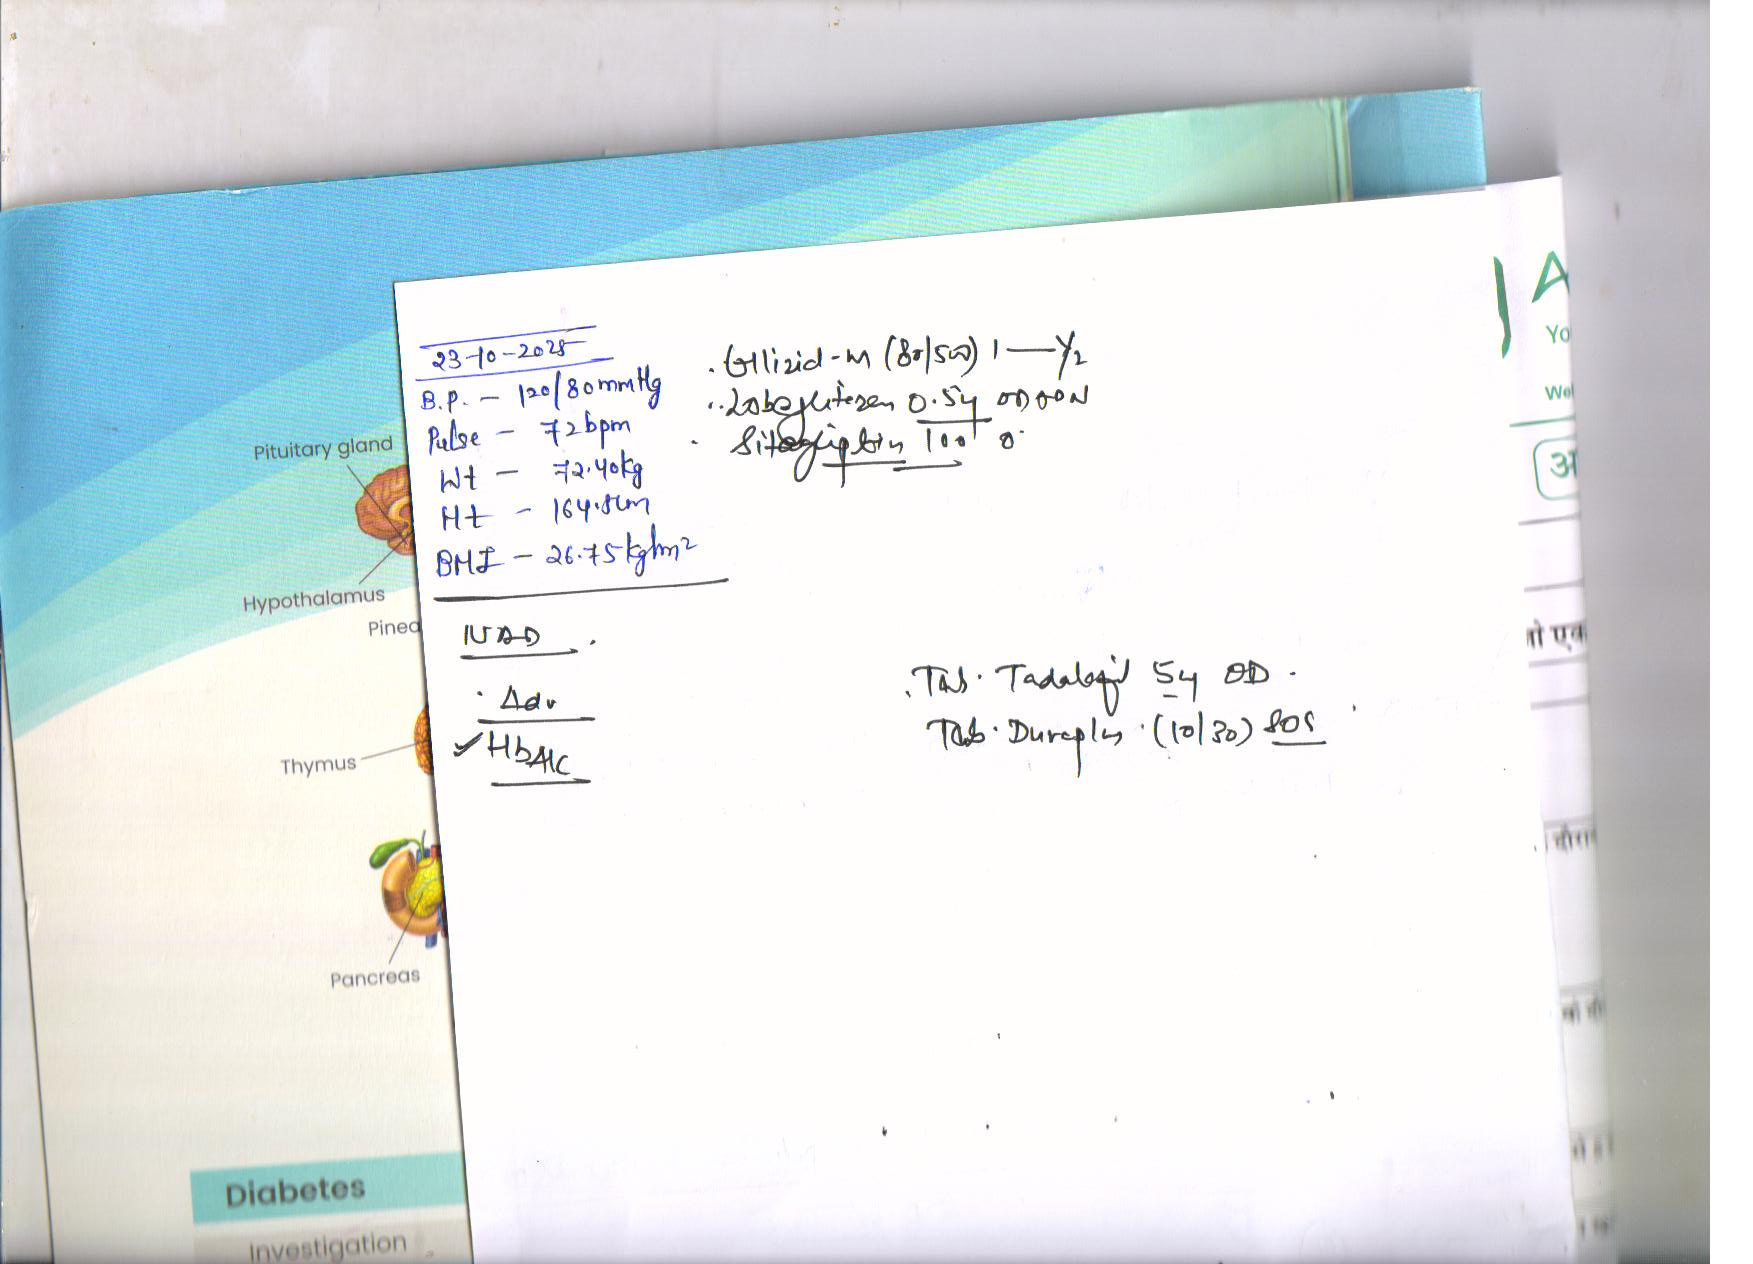 23-10-2025
B.P. - 120/80mmHg
Pulse - 72bpm
Wt - 72.40kg
Ht - 164.5cm
BMI - 26.75kg/m²
NAD
Adv
HbA1c
. Glizid-M (80/500) 1 — 1/2
Lobeglitazon 0.5 OD
. Sitagliptin 100
. Tab. Tadalafil 5 OD.
Tab. Duraplus (10/30) SOS
Pituitary gland
Hypothalamus
Pinea
Thymus
Pancreas
Diabetes
Investigation
A
Yo
We
अ
तो एक
। दौरान